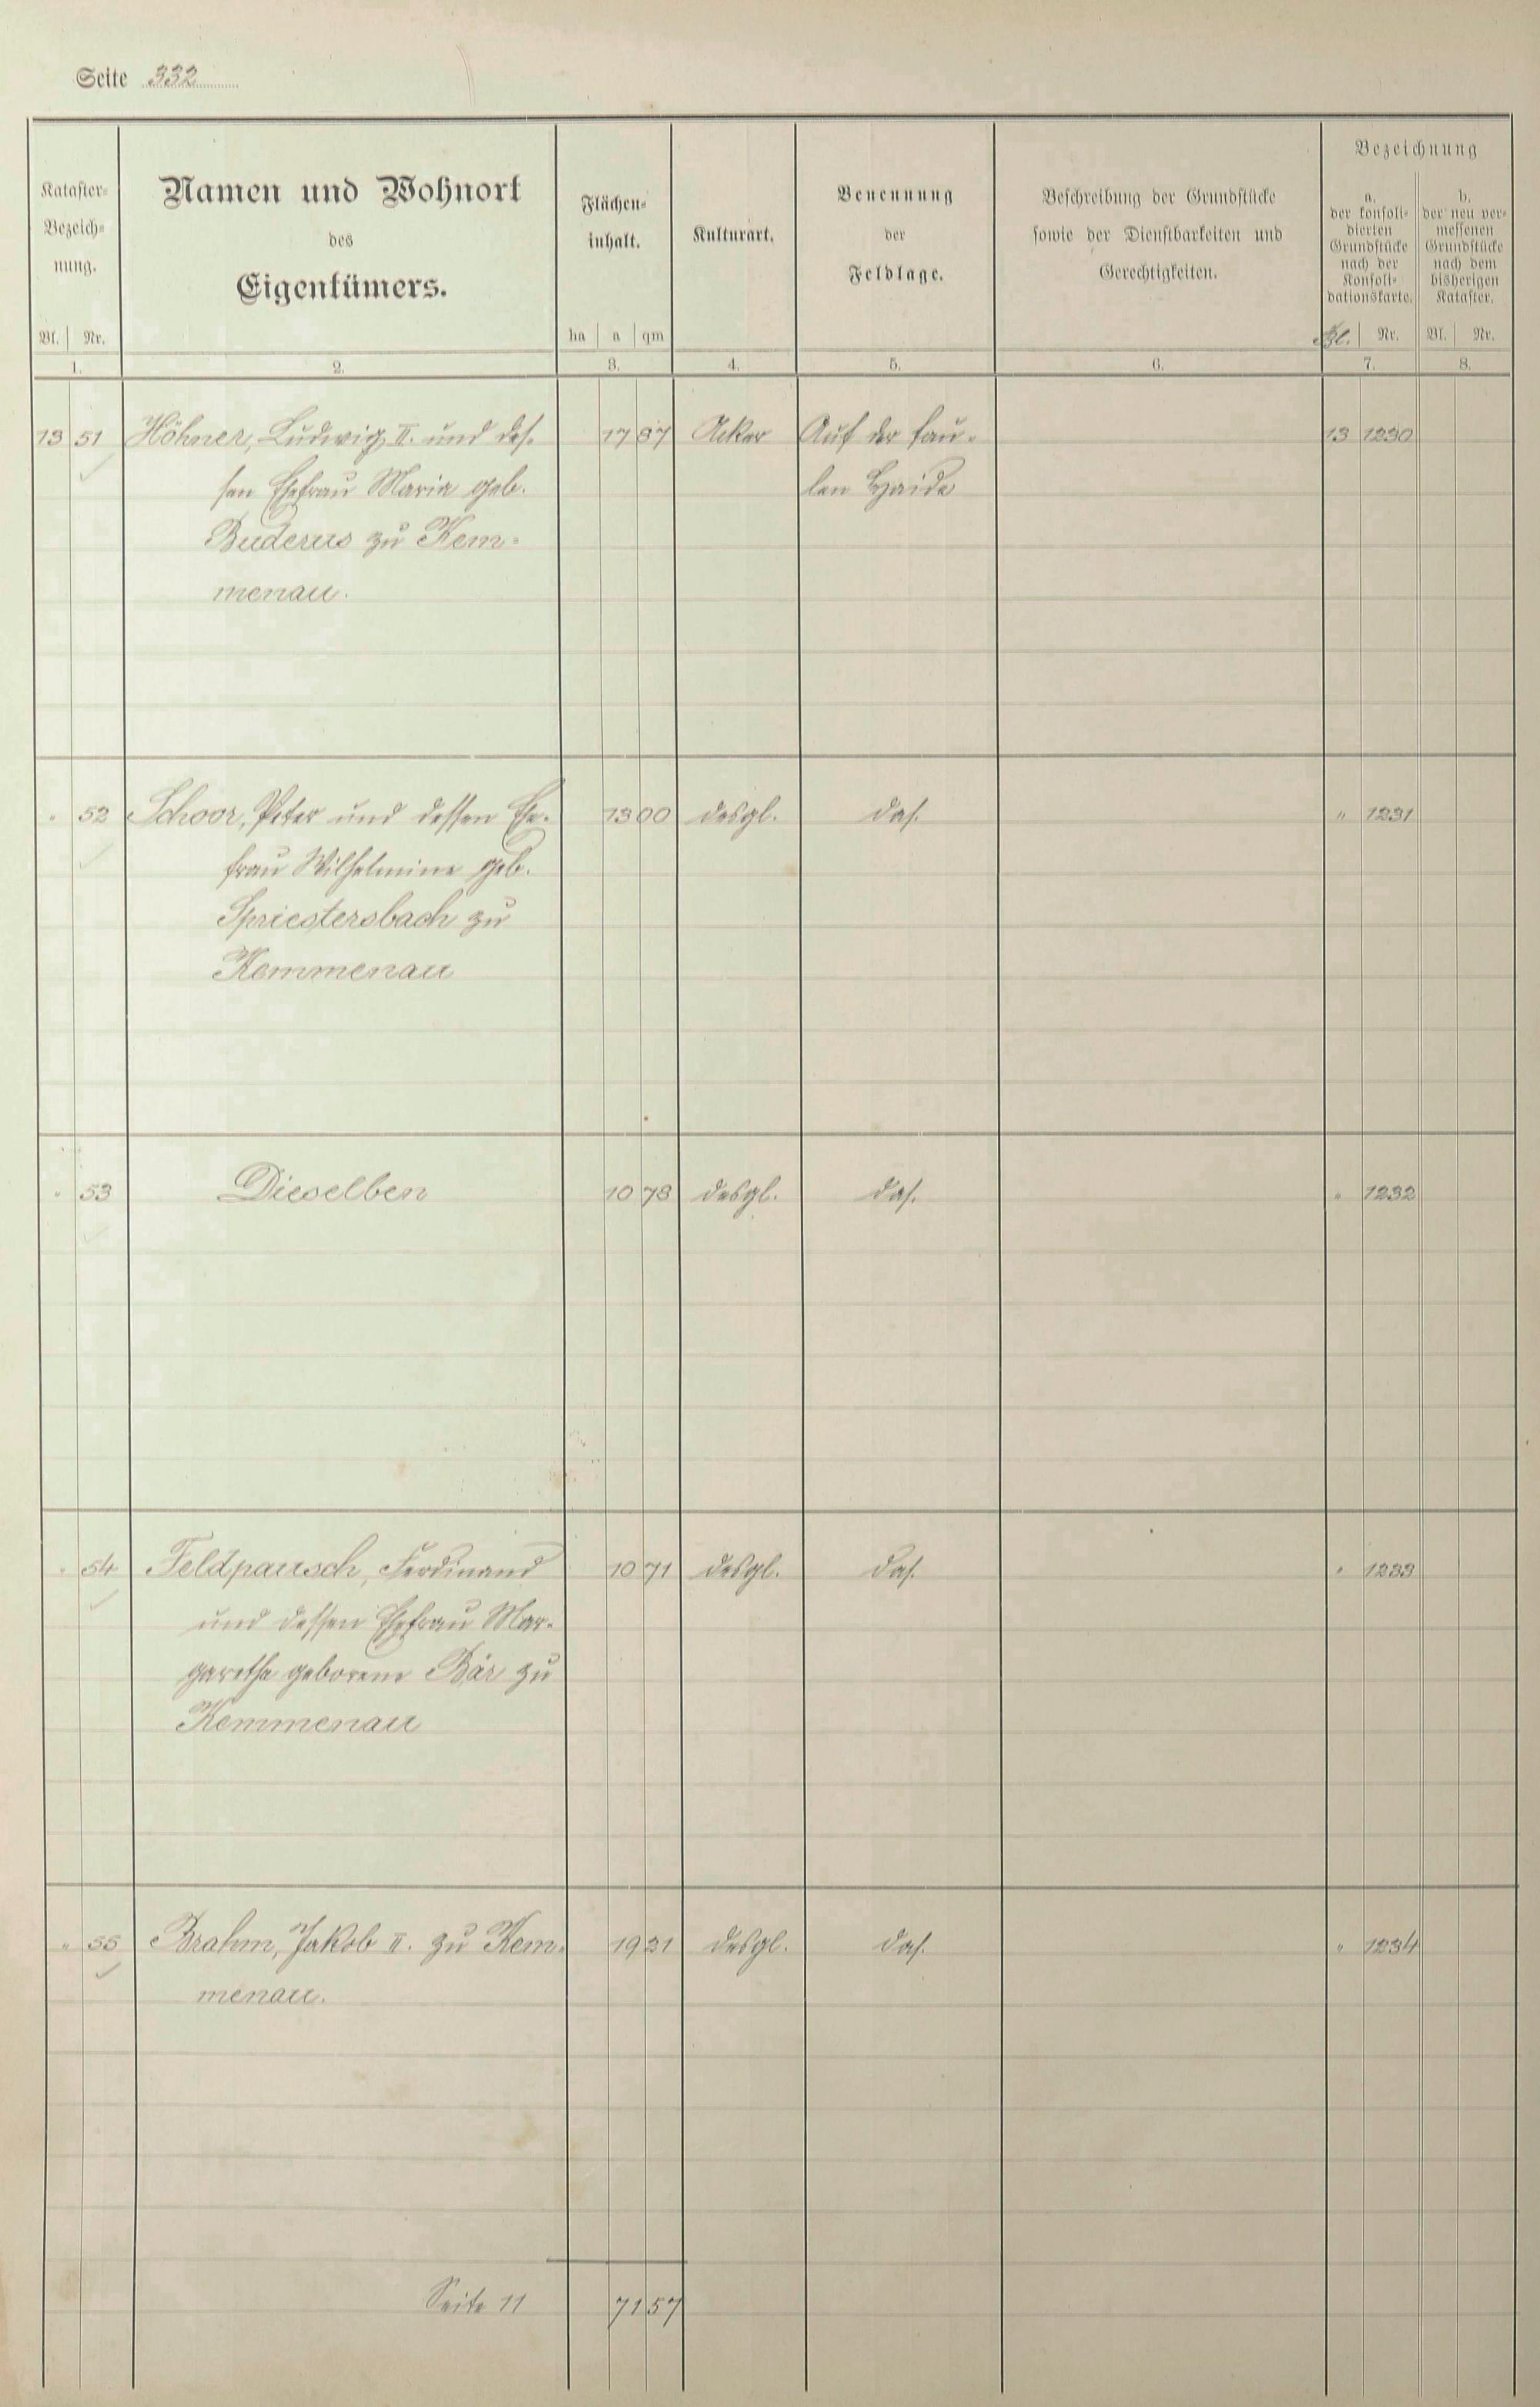 Seite 332
Kataster-
Bezeich-
nung.
Bl. Nr.
1.
Namen und Wohnort
des
Eigentümers.
2.
Flächen-
inhalt.
ha a qm
3.
Kulturart.
4.
Benennung
der
Feldlage.
5.
Beschreibung der Grundstücke
sowie der Dienstbarkeiten und
Gerechtigkeiten.
6.
Bezeichnung
a.
der konsoli-
dierten
Grundstücke
nach der
Konsoli-
dationskarte.
Bl. Nr.
7.
b.
der neu ver-
messenen
Grundstücke
nach dem
bisherigen
Kataster.
Bl. Nr.
8.
13 51 Höhner, Ludwig II. und des- 17 87 Acker Auf der fau- 13 1230
sen Ehefrau Maria geb. len Haide
Buderus zu Kem-
menau.
" 52 Schoor, Peter und dessen Ehe- 13 00 desgl. das. " 1231
frau Wilhelmine geb.
Spriestersbach zu
Kemmenau
" 53 Dieselben 10 78 desgl. das. " 1232
" 54 Feldpausch, Ferdinand 10 71 desgl. das. " 1233
und dessen Ehefrau Mar-
garethe geborene Bär zu
Kemmenau
" 55 Brahm, Jakob II. zu Kem- 19 21 desgl. das. " 1234
menau.
Seite 11 71 57